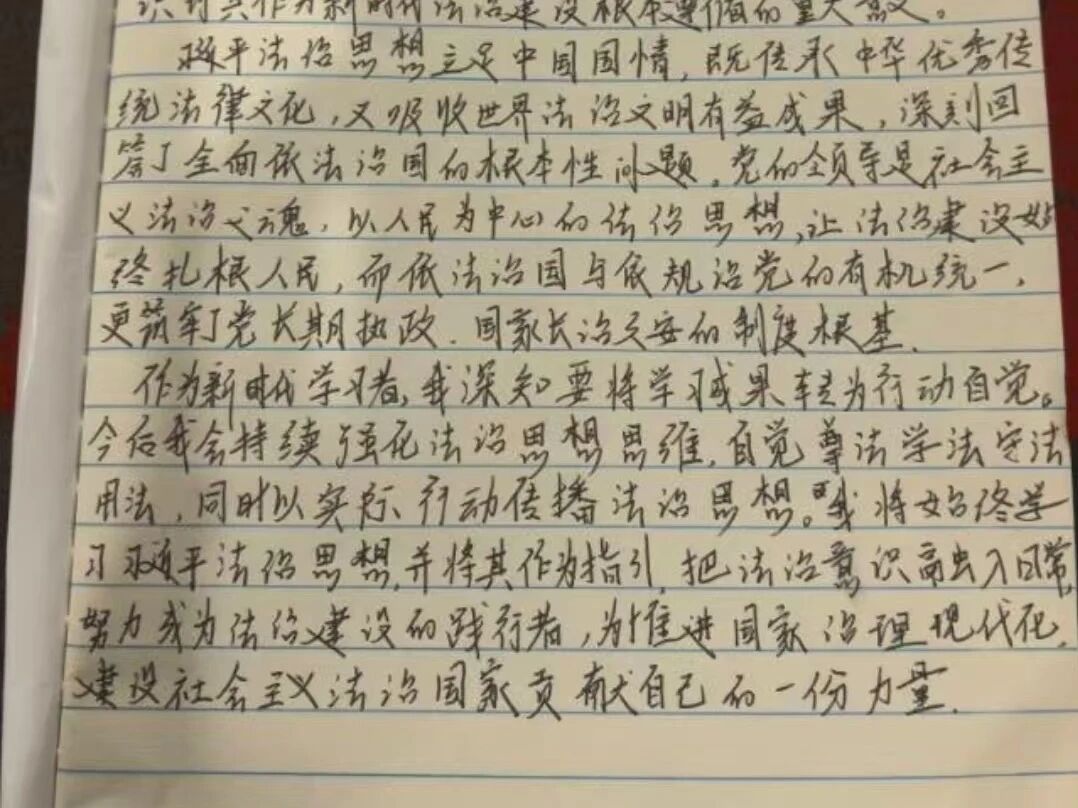 识到其作为新时代法治建设根本遵循的重大意义。
习近平法治思想立足中国国情,既传承中华优秀传
统法律文化,又吸收世界法治文明有益成果,深刻回
答了全面依法治国的根本性问题。党的领导是社会主
义法治之魂,以人民为中心的法治思想,让法治建设始
终扎根人民,而依法治国与依规治党的有机统一,
更筑牢了党长期执政、国家长治久安的制度根基.
作为新时代学习者,我深知要将学习成果转为行动自觉。
今后我会持续强化法治思想思维,自觉尊法学法守法
用法,同时以实际行动传播法治思想。我将始终学
习习近平法治思想,并将其作为指引,把法治意识融入日常,
努力成为法治建设的践行者,为推进国家治理现代化,
建设社会主义法治国家贡献自己的一份力量.